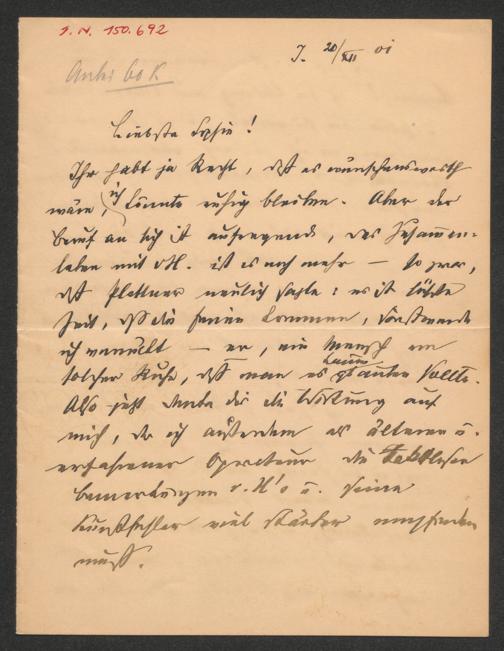 I. N. 150.692
I. 20/XII 01
Liebste Sophie!
Ihr habt ja Recht, daß es wünschenswerth
wäre, ich könnte ruhig bleiben. Aber der
Beruf an sich ist aufregend, das Zusammen-
leben mit v. H. ist es noch mehr — so zwar,
daß Plattner neulich sagte: es ist höchste
Zeit, daß die Ferien kommen, sonst werde
ich verrückt — er, ein Mensch von
solcher Ruhe, daß man es kaum glauben sollte.
Also jetzt denke dir die Wirkung auf
mich, der ich außerdem als älterer u.
erfahrener Operateur die
Bemerkungen v. H's u. seine
Kunstfehler viel stärker empfinden
muß.